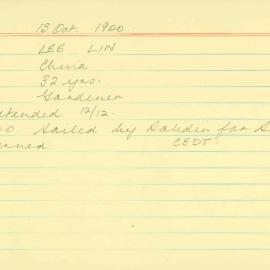 13 Oct. 1900.
LEE LIN
China
32 yrs.
Gardener
tended 12/12.
0 Sailed by for
CEDT.